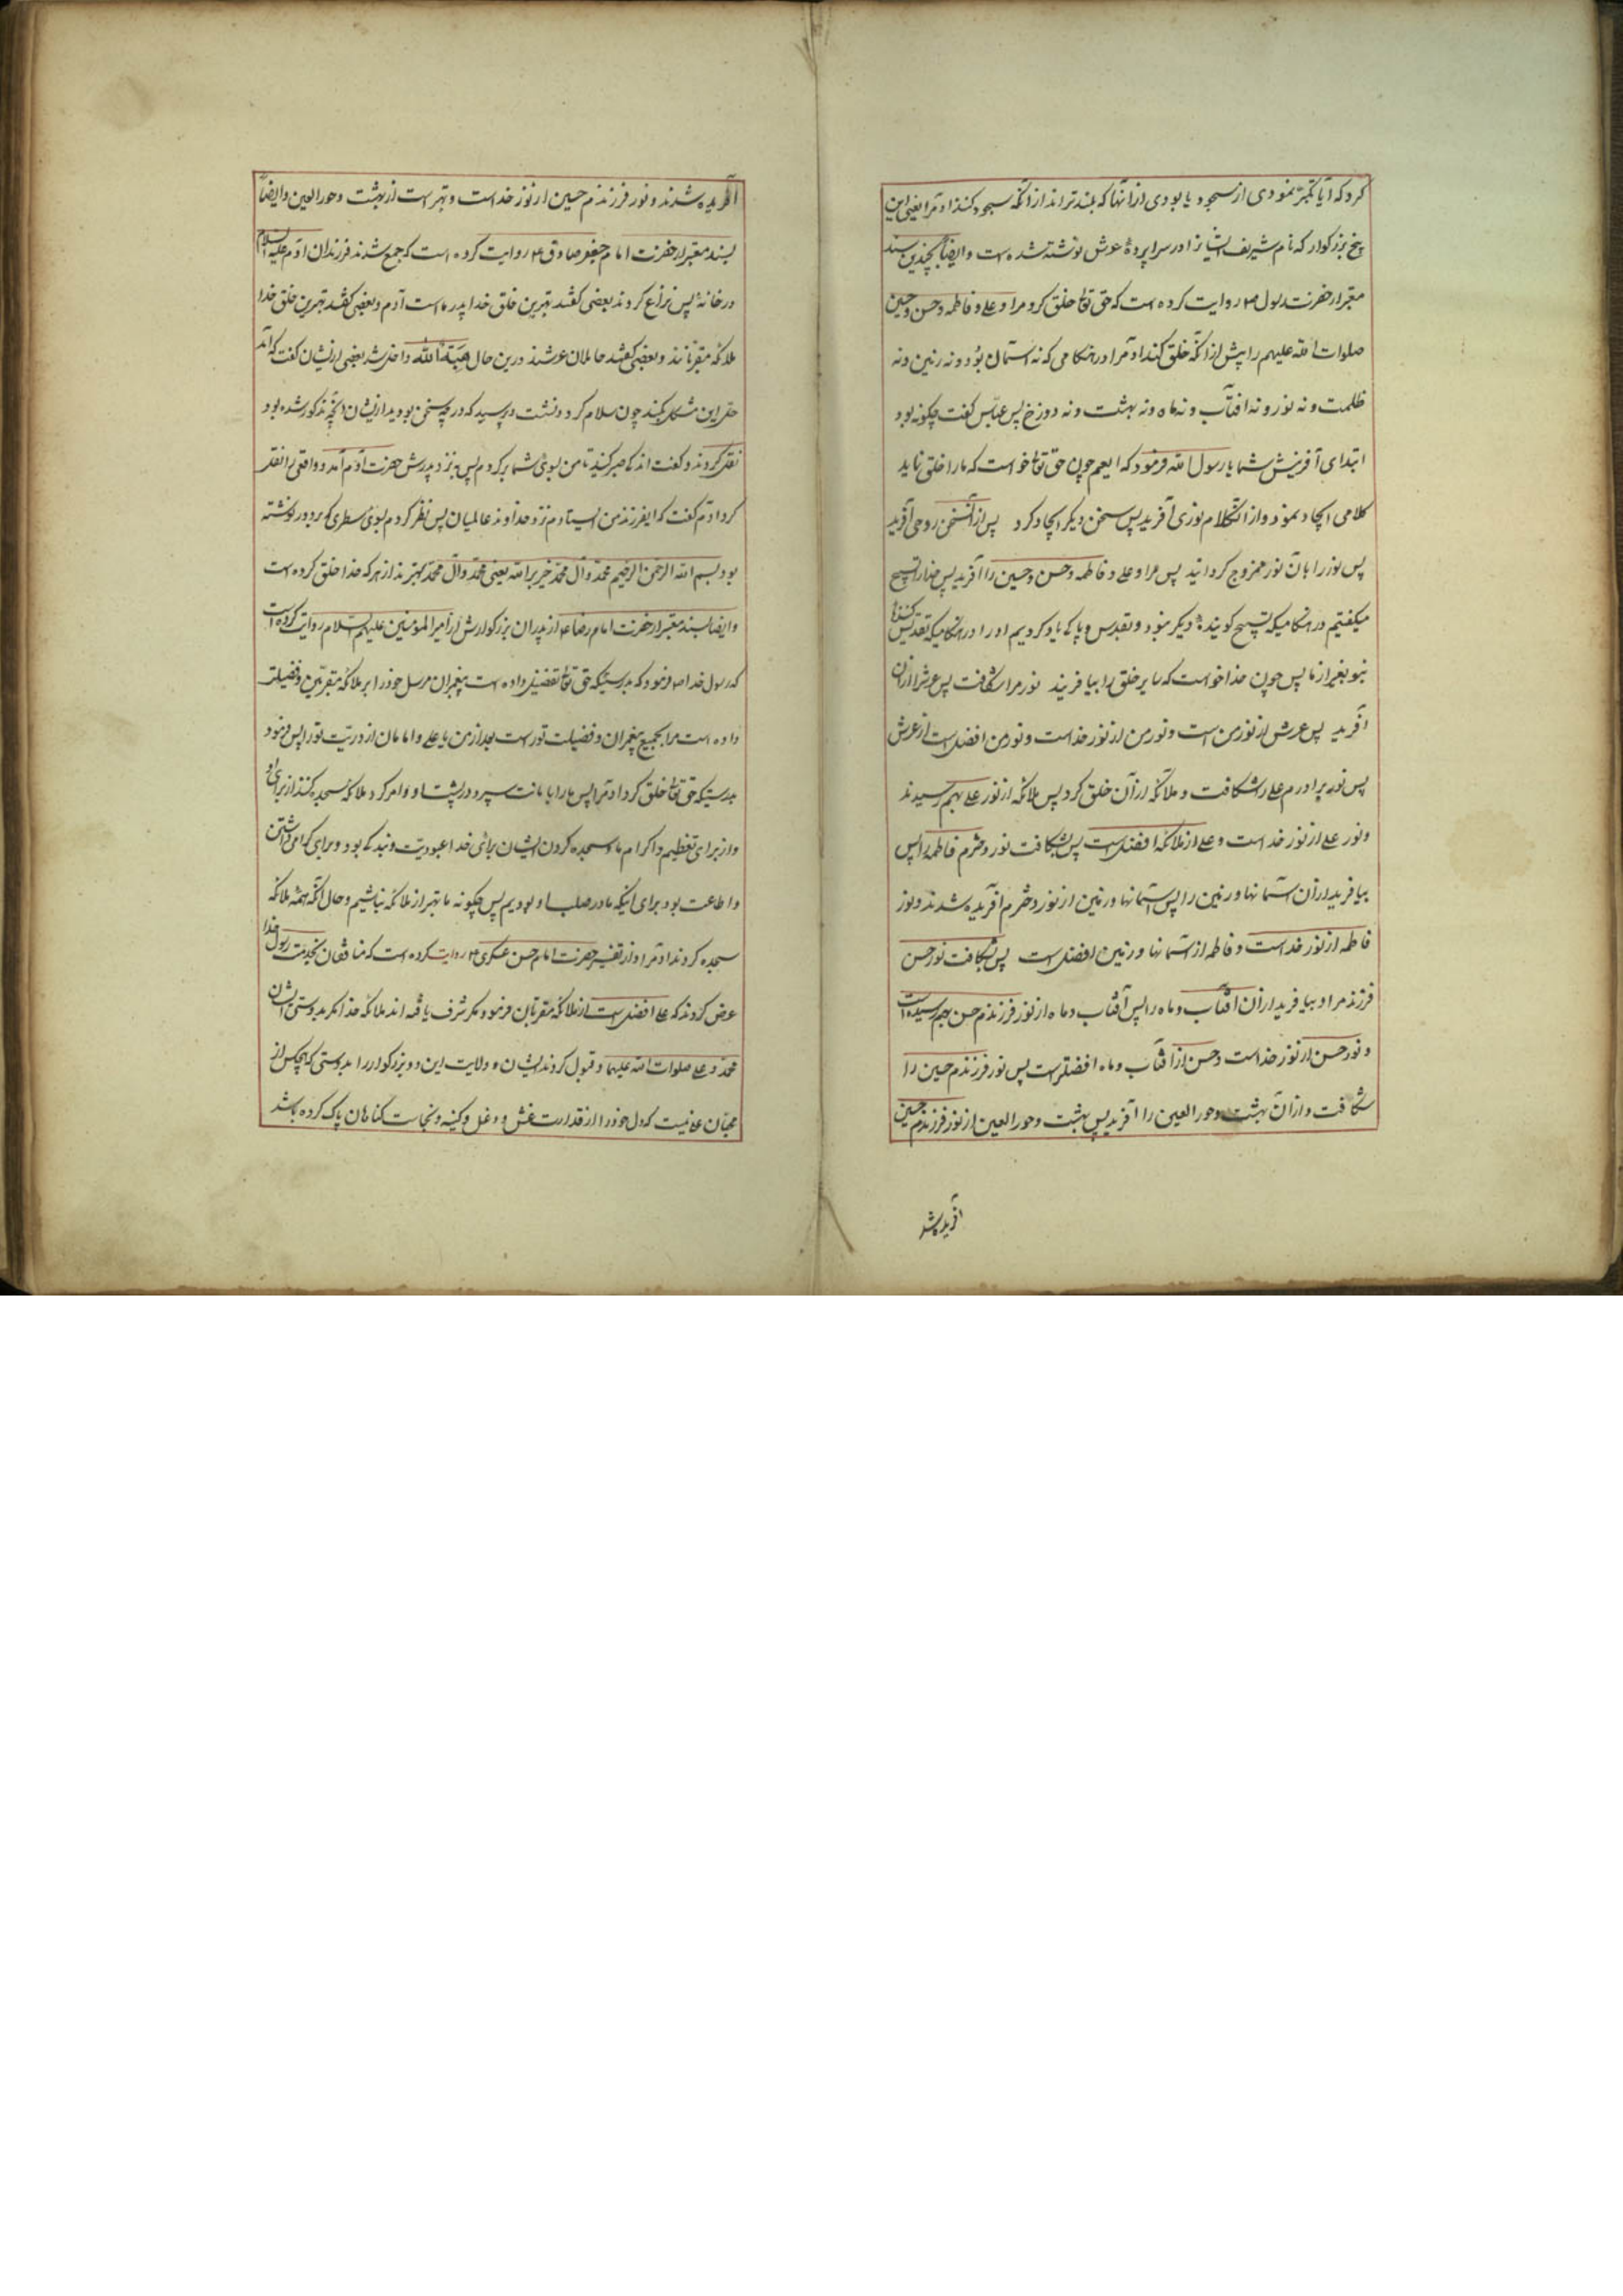 کرد که آیا تکبر نمودی از سجود یا بودی از آنها که بلندتراند از آنکه سجود کنند آدم را یعنی این
پنج بزرکوار که نام شریف ایشانرا در سراپردهٔ عرش نوشته شده است و ایضاً بچندین سند
معتبر از حضرت رسول ص روایت کرده است که حق تعالی خلق کرد مرا و علی و فاطمه و حسن و حسین
صلوات الله علیهم را پیش از آنکه خلق کند آدم را در هنکامی که نه آسمان بود و نه زمین و نه
ظلمت و نه نور و نه آفتاب و نه ماه و نه بهشت و نه دوزخ پس عباس کفت چکونه بود
ابتدای آفرینش شما یا رسول الله فرمود که ایعم چون حق تعالی خواست که ما را خلق نماید
کلامی ایجاد نمود و از آنکلام نوری آفرید پس سخن دیکر ایجاد کرد پس از آنسخن روحی آفرید
پس نور را با آن نور ممزوج کردانید پس مرا و علی و فاطمه و حسن و حسین را آفرید پس خدا را تسبیح
میکفتیم در هنکامیکه تسبیح کوینده دیکر نبود و تقدیس و پاکی یاد کردیم او را در هنکامیکه تقدیس کننده
نبود بغیر از ما پس چون خدا خواست که سایر خلق را بیافریند نور مرا شکافت پس عرش را از آن
آفرید پس عرش از نور من است و نور من از نور خداست و نور من افضل است از عرش
پس نور برادرم علی را شکافت و ملائکه از آن خلق کرد پس ملائکه از نور علی بهم رسیدند
و نور علی از نور خداست و علی از ملائکه افضل است پس بشکافت نور دخترم فاطمه را پس
بیافرید از آن آسمانها و زمین را پس آسمانها و زمین از نور دخترم آفریده شدند و نور
فاطمه از نور خداست و فاطمه از آسمانها و زمین افضل است پس بشکافت نور حسن
فرزند مرا و بیافرید از آن آفتاب و ماه را پس آفتاب و ماه از نور فرزندم حسن بهم رسیده است
و نور حسن از نور خداست و حسن از آفتاب و ماه افضلتر است پس نور فرزندم حسین را
شکافت و از آن بهشت و حور العین را آفرید پس بهشت و حور العین از نور فرزندم حسین
آفریده شد
آفریده شدند و نور فرزندم حسین از نور خداست و بهتر است از بهشت و حور العین و ایضاً
بسند معتبر از حضرت امام جعفر صادق ع روایت کرده است که جمع شدند فرزندان آدم علیه السلام
در خانهٔ پس نزاع کردند بعضی کفتند بهترین خلق خدا پدر ماست آدم و بعضی کفتند بهترین خلق خدا
ملائکه مقربانند و بعضی کفتند حاملان عرشند درین حال هبة الله داخل شد بعضی از ایشان کفت که آمد
حل این مشکل بکند چون سلام کرد و نشست و پرسید که در چه سخن بودید ایشان آنچه مذکور شده بود
نقل کردند و کفت اندکی صبر کنید تا من بسوی شما برکردم پس بنزد پدرش حضرت آدم آمد و واقعه را نقل
کرد آدم کفت که ایفرزند من ایستادم نزد خداوند عالمیان پس نظر کردم بسوی سطری که بر دور نوشته
بود بسم الله الرحمن الرحیم محمد و آل محمد خیر برا الله یعنی محمد و آل محمد بهترند از هر که خدا خلق کرده است
و ایضاً بسند معتبر از حضرت امام رضا ع از پدران بزرکوارش از امیر المومنین علیهم السلام روایت کرده است
که رسول خدا ص فرمود که بدرستیکه حق تعالی تفضیل داده است پیغمبران مرسل خود را بر ملائکه مقربین و فضیلت
داده است مرا بجمیع پیغمبران و فضیلت تو راست بعد از من یا علی و امامان از ذریت تو را پس فرمود
بدرستیکه حق تعالی خلق کرد آدم را پس ما را بامانت سپرد در پشت او و امر کرد ملائکه سجده کنند از برای او
و از برای تعظیم و اکرام ما و سجده کردن ایشان برای خدا عبودیت و بندکی بود و برای کرامی داشتن
و اطاعت بود برای اینکه ما در صلب او بودیم پس چکونه ما بهتر از ملائکه نباشیم و حال آنکه همه ملائکه
سجده کردند آدم را و از تفسیر حضرت امام حسن عسکری ع روایت کرده است که منافقان بخدمت رسول خدا
عرض کردند که علی افضل است از ملائکه مقربان فرمود مکر شرف یافته اند ملائکه خدا مکر بدوستی ایشان
محمد و علی صلوات الله علیهما و قبول کردند ایشان ولایت این دو بزرکوار را بدرستی که هیچکس از
محبان علی نیست که دل خود را از قذارت غش و دغل و کینه و نجاست کناهان پاک کرده باشد